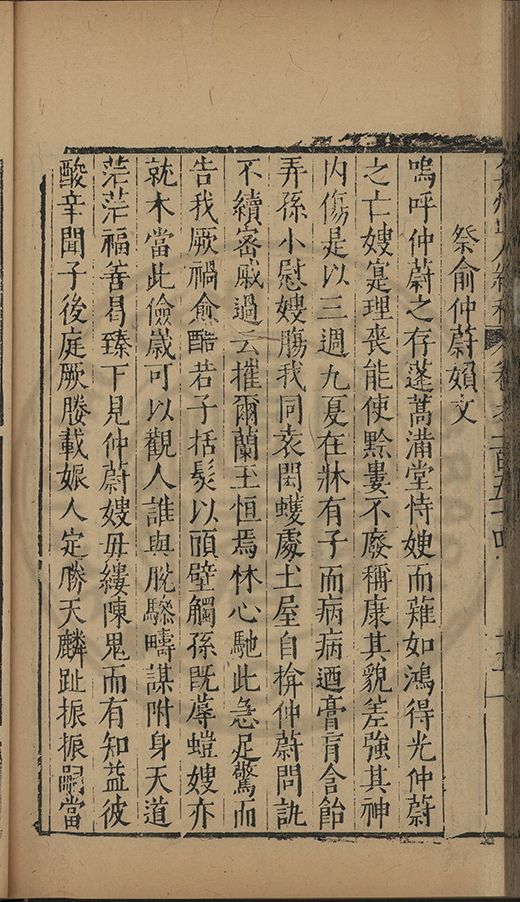 弇州山人續稿 卷之一百五十四
祭俞仲蔚嬪文
嗚呼仲蔚之存蓬蒿滿堂恃嫂而薙如鴻得光仲蔚
之亡嫂寔理喪能使黔婁不廢稱康其貌差強其神
內傷是以三週九夏在牀有子而病病迺膏肓含飴
弄孫小慰嫂膓我同袁閎蠖處土屋自檢仲蔚問訊
不續審戚過云摧爾蘭玉恒焉怵心馳此急足驚而
告我厥禍愈酷若子括髮以頭壁觸孫既蓐螘嫂亦
就木當此儉歲可以觀人誰與脫驂疇謀附身天道
茫茫福善曷臻下見仲蔚嫂毋縷陳鬼而有知益彼
酸辛聞子後庭厥媵載娠人定勝天麟趾振振嗣當